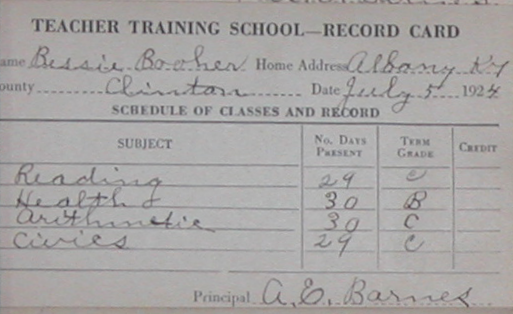 TEACHER TRAINING SCHOOL—RECORD CARD
ame Bessie Booher Home Address Albany Ky
ounty Clinton Date July 5 1924
SCHEDULE OF CLASSES AND RECORD
SUBJECT No. Days Present Term Grade Credit
Reading 29 C
Health 30 B
Arithmetic 30 C
Civics 29 C
Principal A. E. Barnes